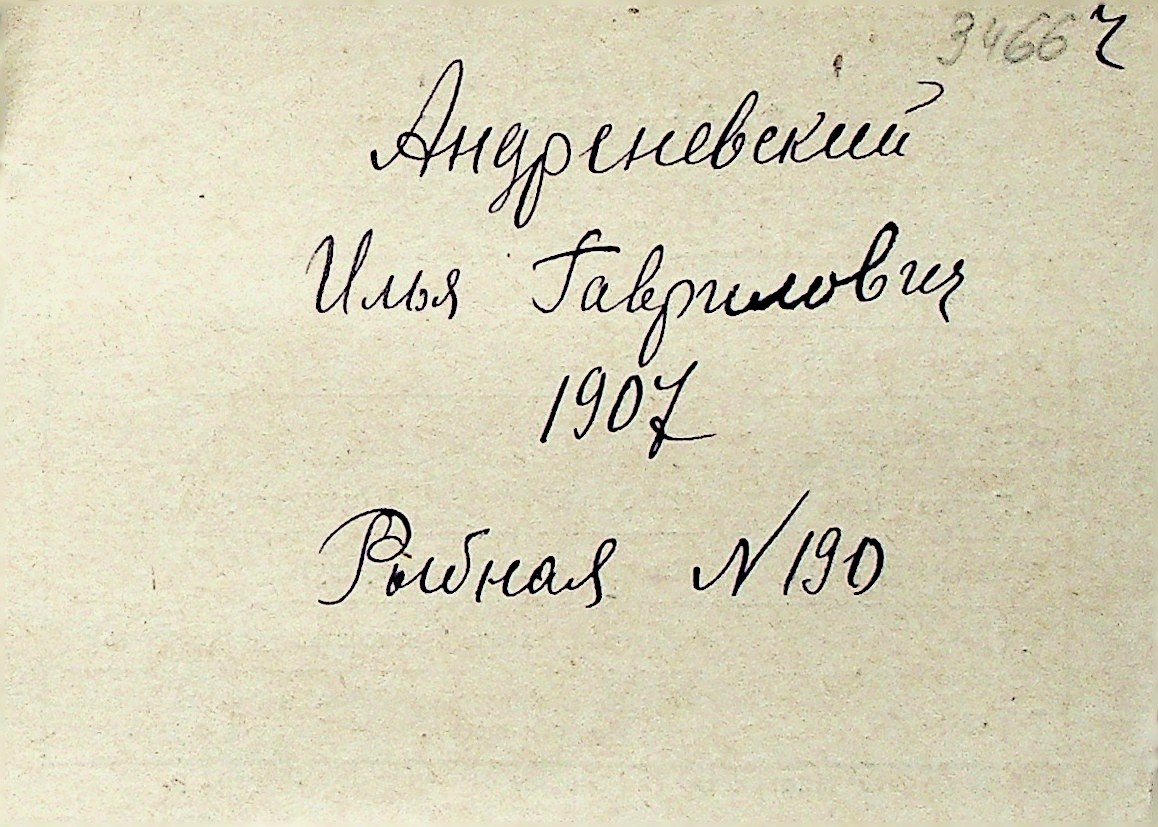 3466 ч
Андреневский
Илья Гаврилович
1907
Рыбная N 190